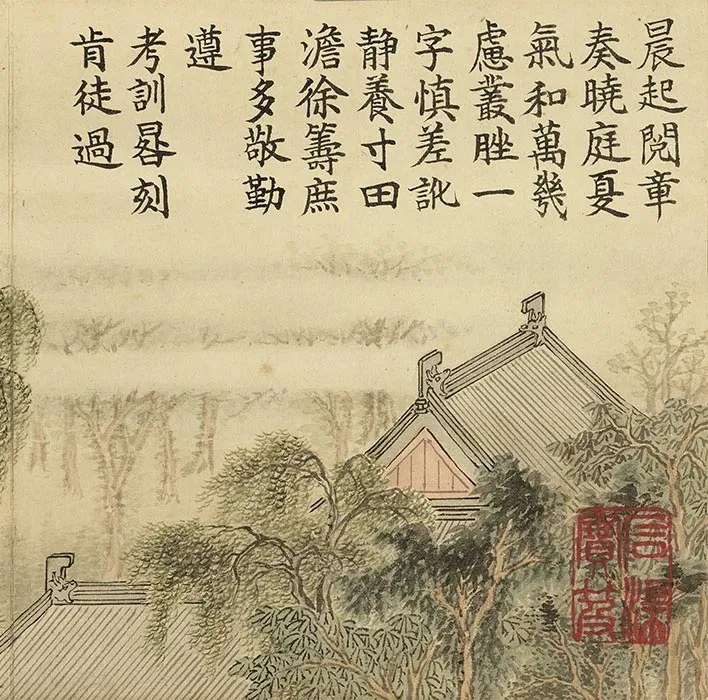 晨起閱章
奏曉庭夏
氣和萬幾
慮叢脞一
字慎差訛
静養寸田
澹徐籌庶
事多敬勤
遵
考訓晷刻
肯徒過